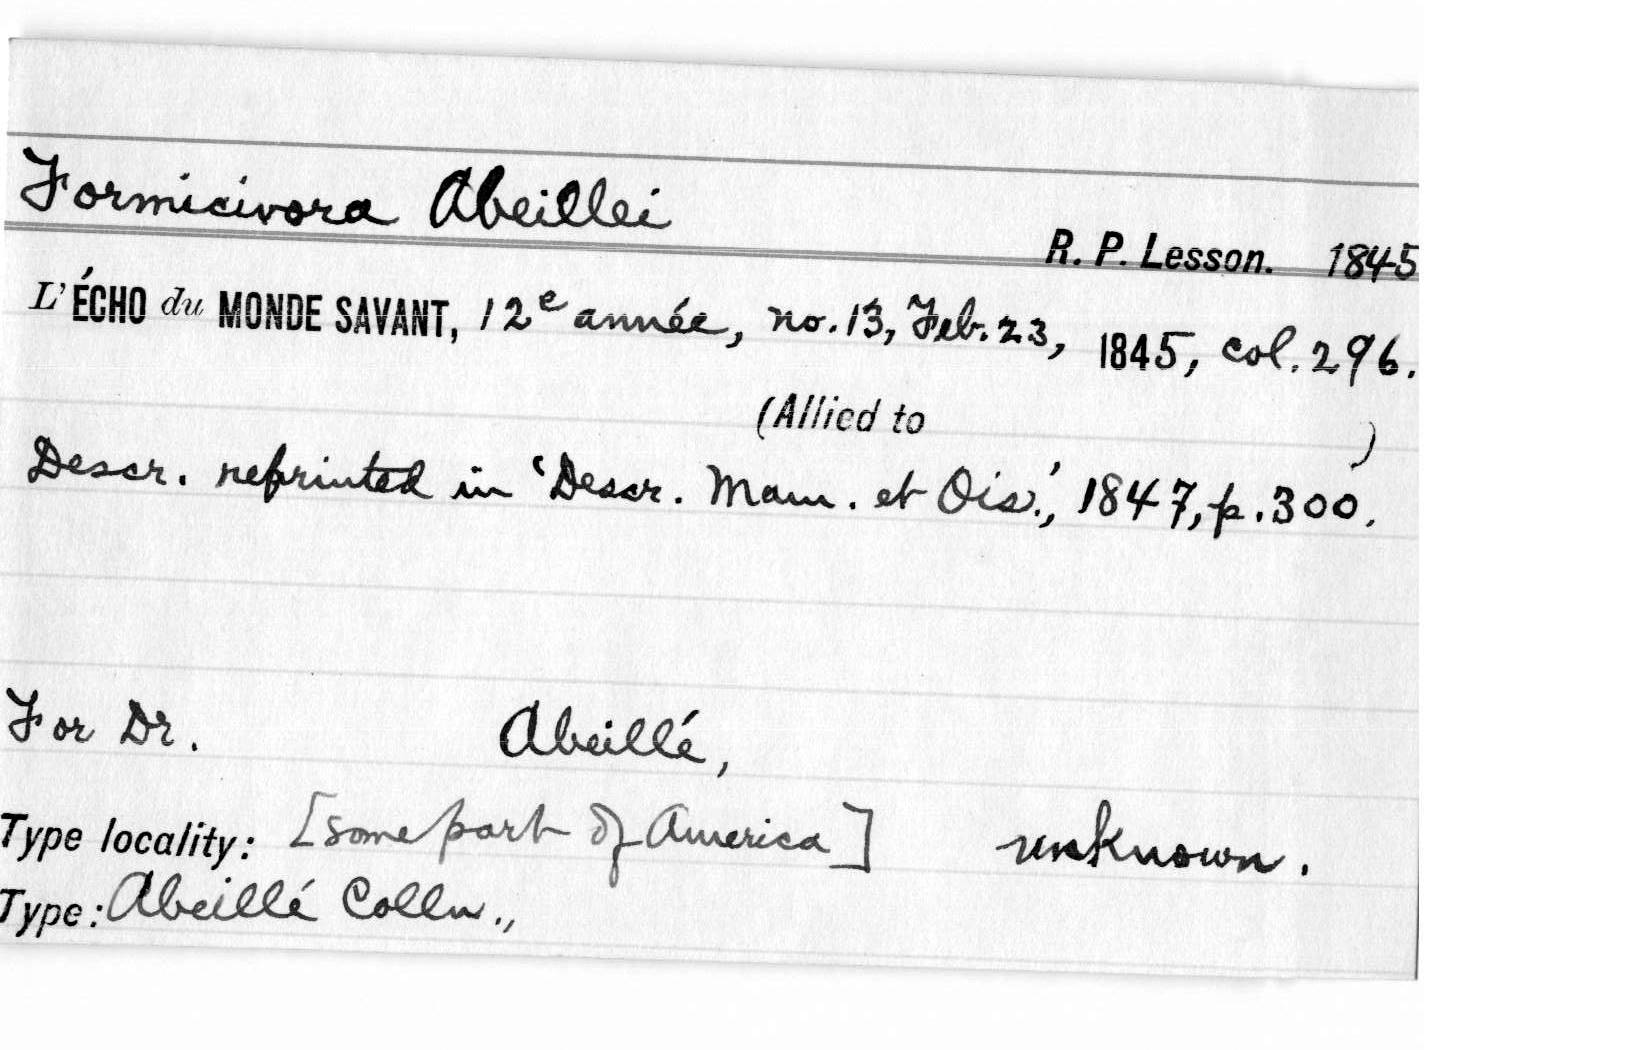 Formicivora Abeillei
R. P. Lesson. 1845
L'ÉCHO du MONDE SAVANT, 12e année, no. 13, Feb. 23, 1845, col. 296.
(Allied to )
Descr. reprinted in 'Descr. Mam. et Ois.', 1847, p. 300.
For Dr. Abeillé,
Type locality: [some part of America] unknown.
Type: Abeillé Colln.,